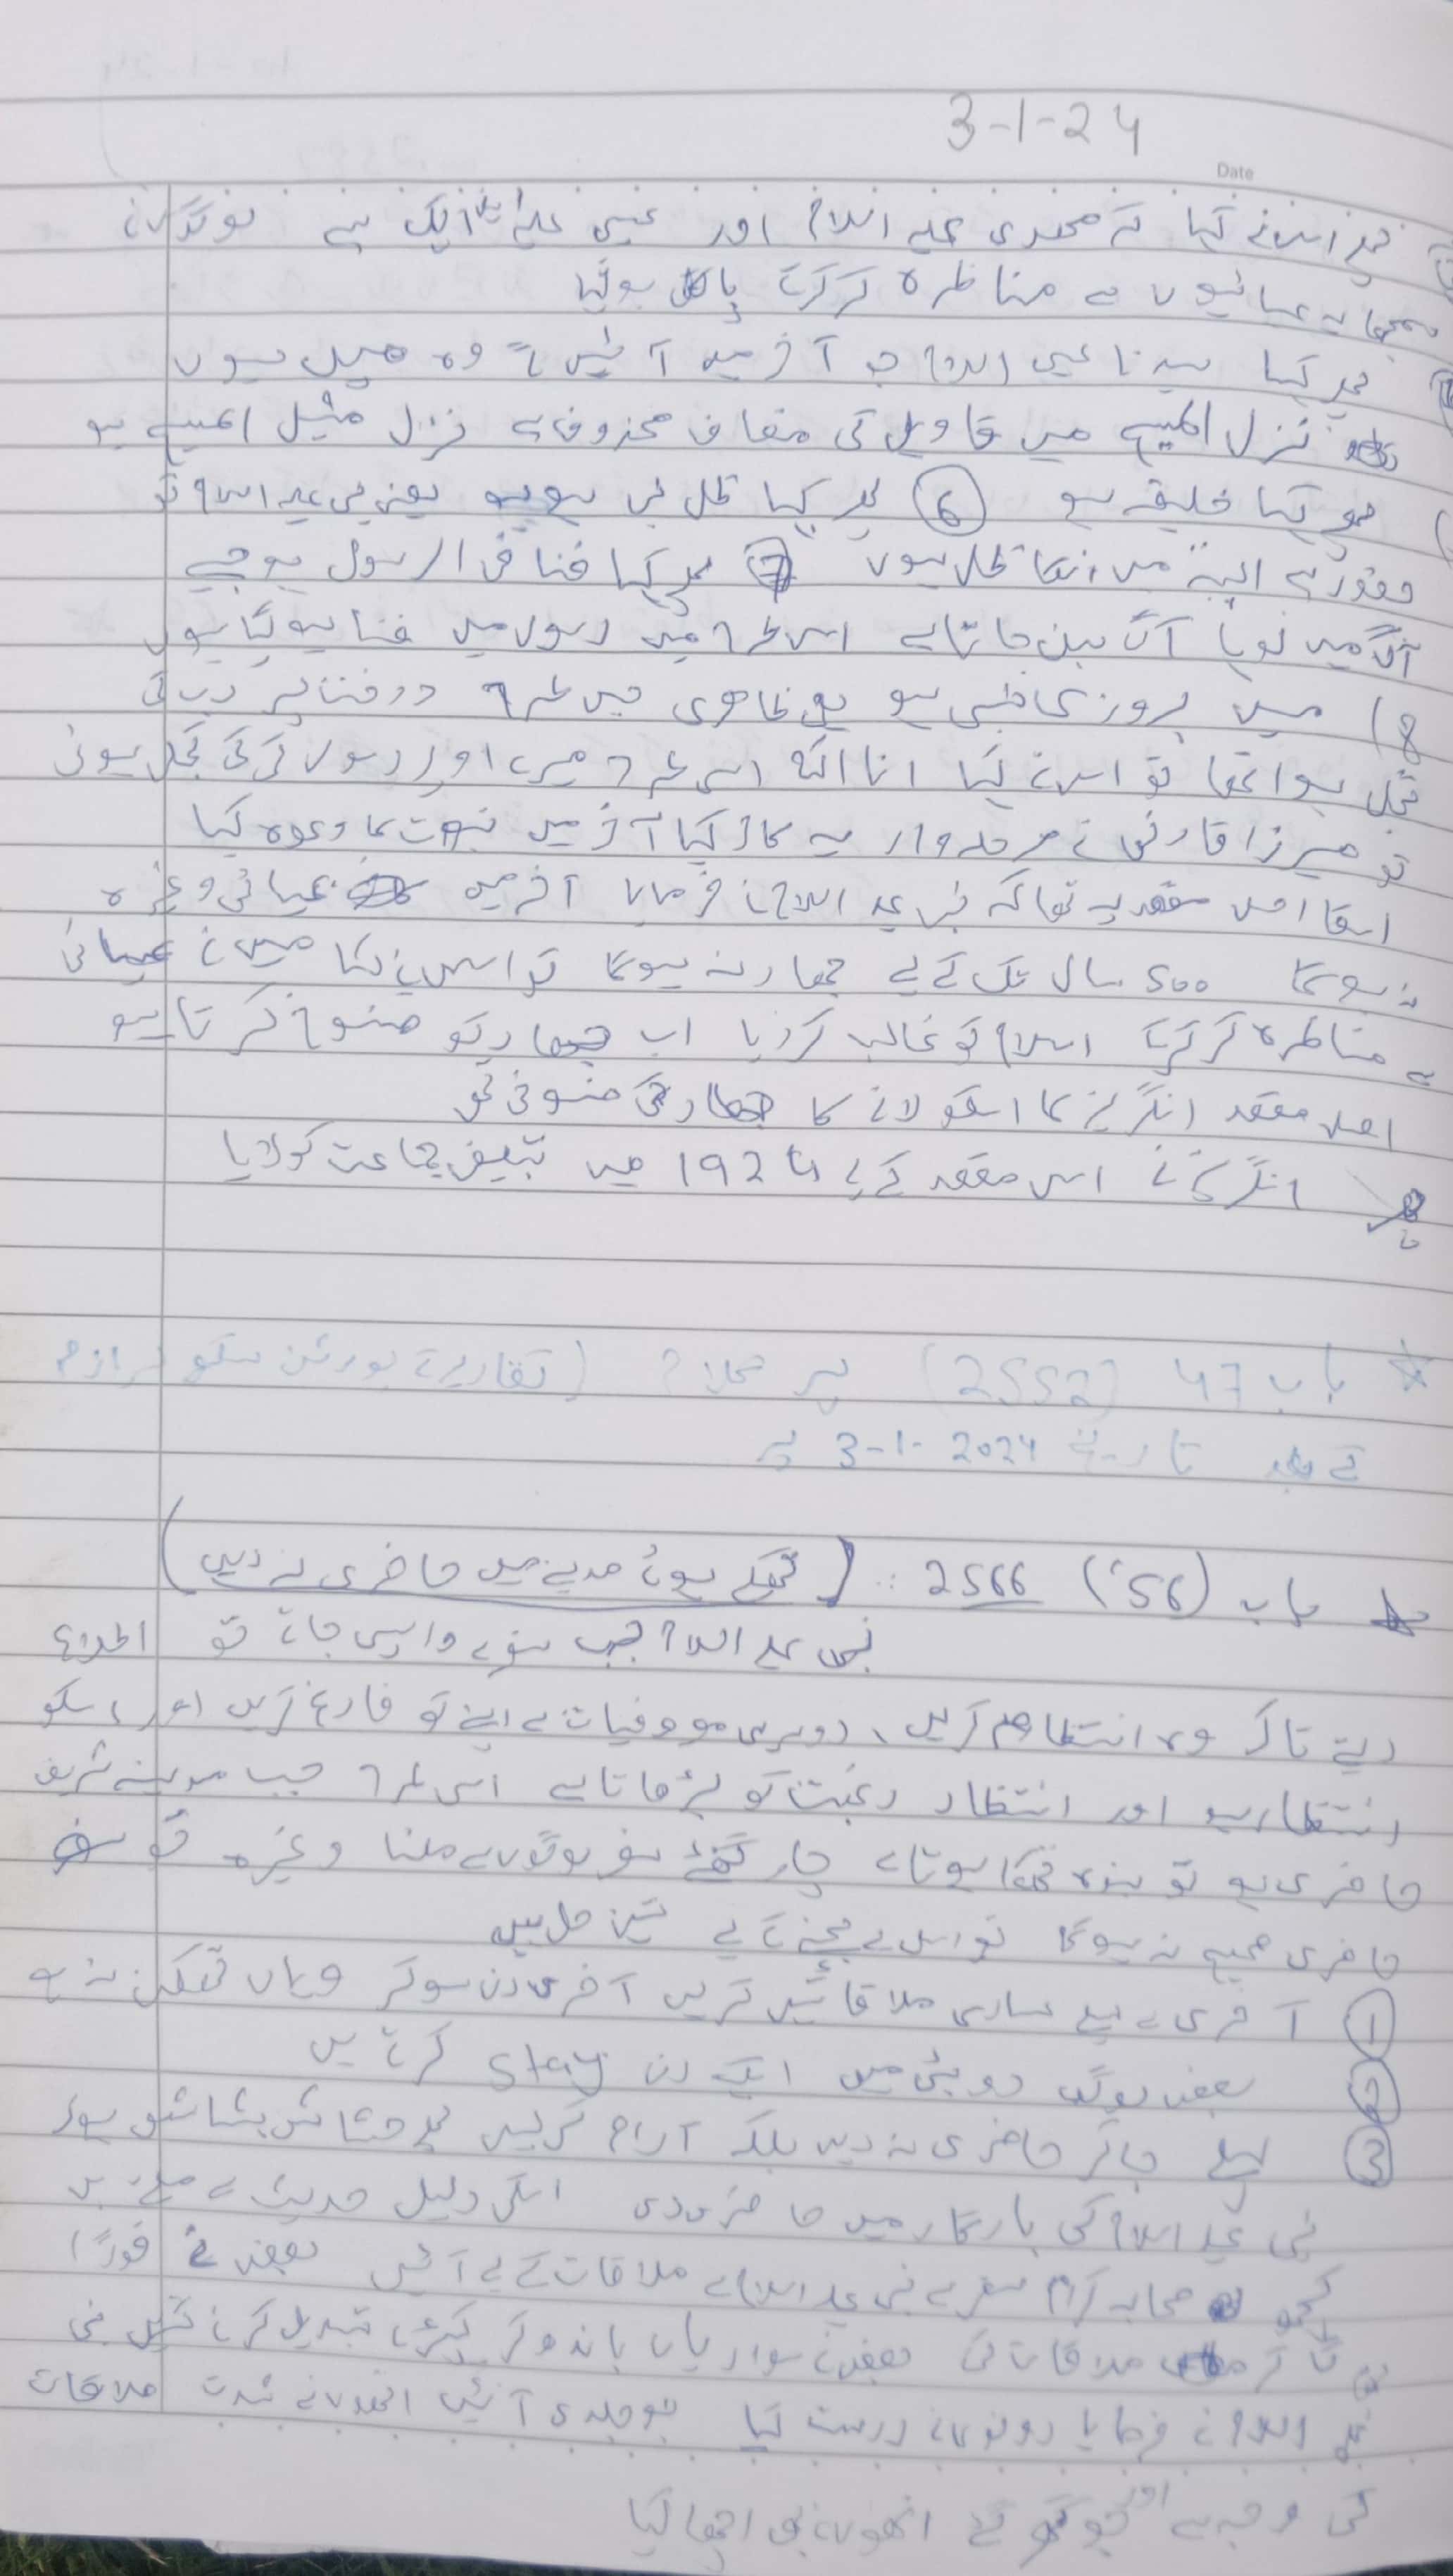 3-1-24
Date
پھر اس نے کہا کہ محمدی علیہ السلام اور عیسی علیہ السلام ایک ہے تو لوگوں نے
سمجھا یہ عیسائیوں سے مناظرہ کر کرکے پاگل ہوگیا
پھر کہا سیدنا عیسی علیہ السلام جو آخر میں آئیں گے وہ میں ہوں
نزل المسیح میں تاویل کی مضاف محذوف ہے نزل مثیل المسیح ہو
پھر کہا خلیفہ ہو ⑥ پھر کہا ظل نبی ہوں یعنی نبی علیہ السلام تو
حضور ہے البتہ میں انکا ظل ہوں ⑦ پھر کہا فنا فی الرسول ہو جیسے
آگ میں لوہا آگ بن جاتا ہے اس طرح میں رسول میں فنا ہوگیا ہوں
8) میں بروزی نبی ہو یعنی ظاھری جس طرح درخت پر رب کی
تجلی ہوا تھا تو اس نے کہا انا اللہ اس طرح میرے اوپر رسول کی تجلی ہوئی
تو میرزا قادنی نے مرحلہ وار یہ کام کیا آخر میں نبوت کا دعوہ کیا
اسکا اصل مقصد یہ تھا کہ نبی علیہ السلام نے فرمایا آخر میں عیسائی وغیرہ
نہ ہوگا 500 سال تک کے لیے جھاد نہ ہوگا تو اس نے کہا میں نے عیسائی
سے مناظرہ کر کرکے اسلام کو غالب کردیا اب جھاد کو منسوخ کرتا ہو
اصل مقصد انگریز کا اسکو لانے کا جھاد کی منسوخی تھی
انگریز نے اس مقصد کے لے 1924 میں تبلیغی جماعت کو لایا
☆ باب 47 (2552) پر کلام (تقاریر کے پورشن
کے بعد تاریخ 3-1-2024 ہے
☆ باب (56) 2566 :: (تھکے ہوئے مدینے میں حاضری نہ دیں)
نبی علیہ السلام جب سفر سے واپس جاتے تو اطلاع
دیتے تاکہ وہ انتظام کریں، دوسری مصروفیات سے اپنے کو فارغ کریں اور اسکو
انتظار ہو اور انتظار رغبت کو بڑھاتا ہے اسی طرح جب مدینے شریف
حاضری ہو تو بندہ تھکا ہوتا ہے چار گھنٹے سفر لوگوں سے ملنا وغیرہ تو
حاضری صحیح نہ ہوگا تو اس سے بچنے کے لیے تین حل ہیں
① آخری سے پہلے ساری ملاقاتیں کریں آخری دن سوکر وہاں تھکن نہ ہو
② بعض لوگ دوبئی میں ایک دن stay کرتے ہیں
③ پہلے جاکر حاضری نہ دیں بلکہ آرام کرلیں پھر ھشاش بشاش ہوکر
نبی علیہ السلام کی بارگاہ میں حاضری دی اسکی دلیل حدیث سے ملتے ہیں
کچھ صحابہ کرام سفر سے نبی علیہ السلام سے ملاقات کے لے آئیں بعض نے فورًا
آکر ملاقات کی بعض نے سواریاں باندھ کر کپڑے تبدیل کرنے گئیں نبی
علیہ السلام نے فرمایا دونوں نے درست کیا جو جلدی آئیں انھوں نے شدت ملاقات
کی وجہ سے اور جو گئے انھوں نے بھی اچھا کیا